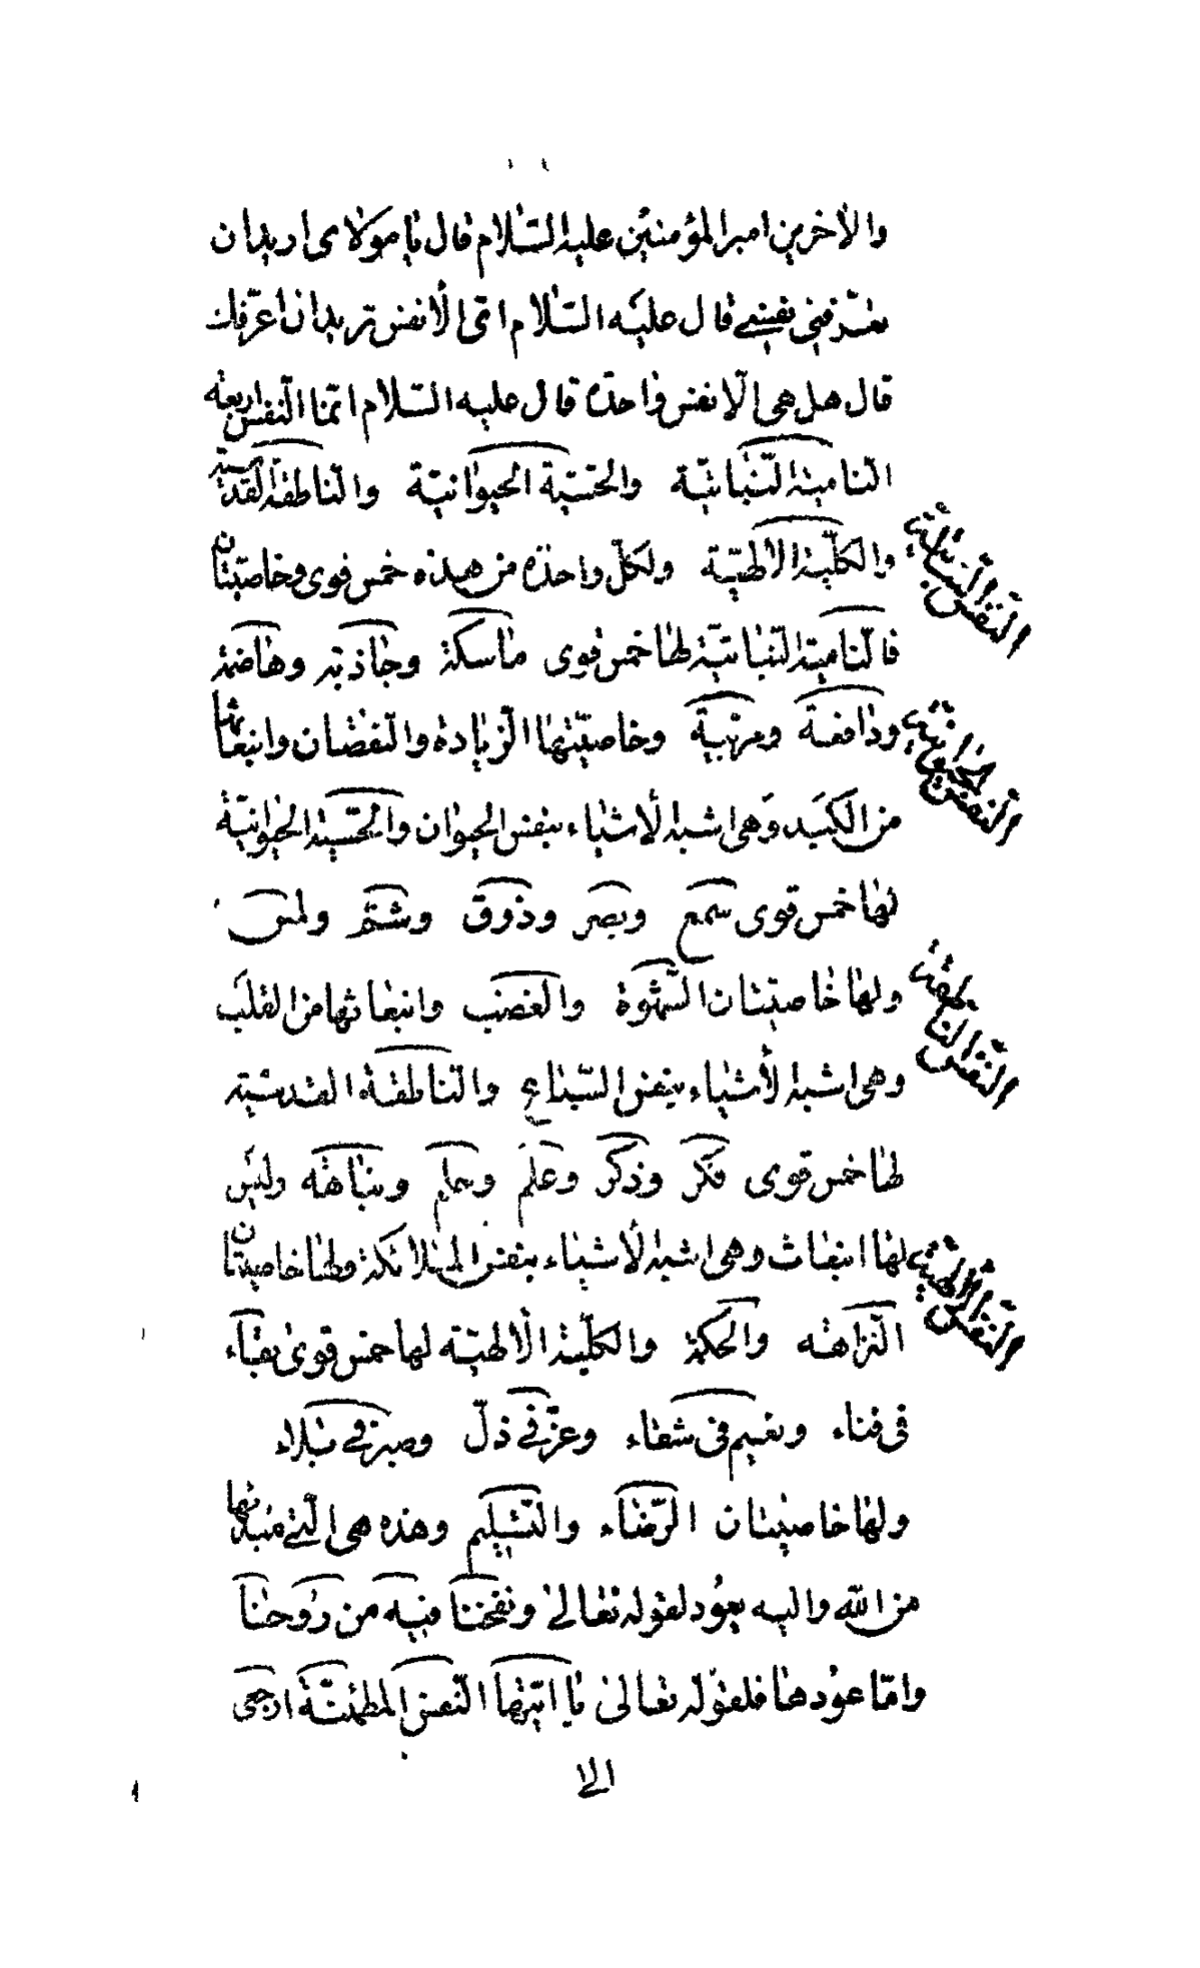 والاخرين امير المؤمنين عليه السّلام قال يا مولاى اريد ان
تعرّفنى نفسى قال عليه السّلام اىّ الأنفس تريد ان اعرّفك
قال هل هى الّا نفس واحدة قال عليه السّلام انّما النّفس اربعة
النامية النّباتيّة والحسّيّة الحيوانيّة والنّاطقة القدسيّة
والكلّيّة الالهيّة ولكلّ واحدة من هذه خمس قوى وخاصيّتان
النّفس النّباتيّة
فالنّامية النّباتيّة لها خمس قوى ماسكة وجاذبة وهاضمة
ودافعة ومربّية وخاصيّتها الزّيادة والنّقصان وانبعاثها
النّفس الحيوانيّة
من الكبد وهى اشبه الأشياء بنفس الحيوان والحسّيّة الحيوانيّة
لها خمس قوى سمع وبصر وذوق وشمّ ولمس
ولها خاصيّتان الشّهوة والغضب وانبعاثها من القلب
النّفس الناطقة
وهى اشبه الأشياء بنفس السّباع والنّاطقة القدسيّة
لها خمس قوى فكر وذكر وعلم وحلم ونباهة وليس
لها انبعاث وهى اشبه الأشياء بنفس الملائكة ولها خاصيّتان
النّفس الالهيّة
النّزاهة والحكمة والكلّيّة الالهيّة لها خمس قوى بقاء
فى فناء ونعيم فى شقاء وعزّ فى ذلّ وصبر فى بلاء
ولها خاصيّتان الرّضاء والتّسليم وهذه هى الّتى مبدئها
من اللّه واليه يعود لقوله تعالى ونفخنا فيه من روحنا
وامّا عودها فلقوله تعالى يا ايّتها النّفس المطمئنّة ارجعى
الى